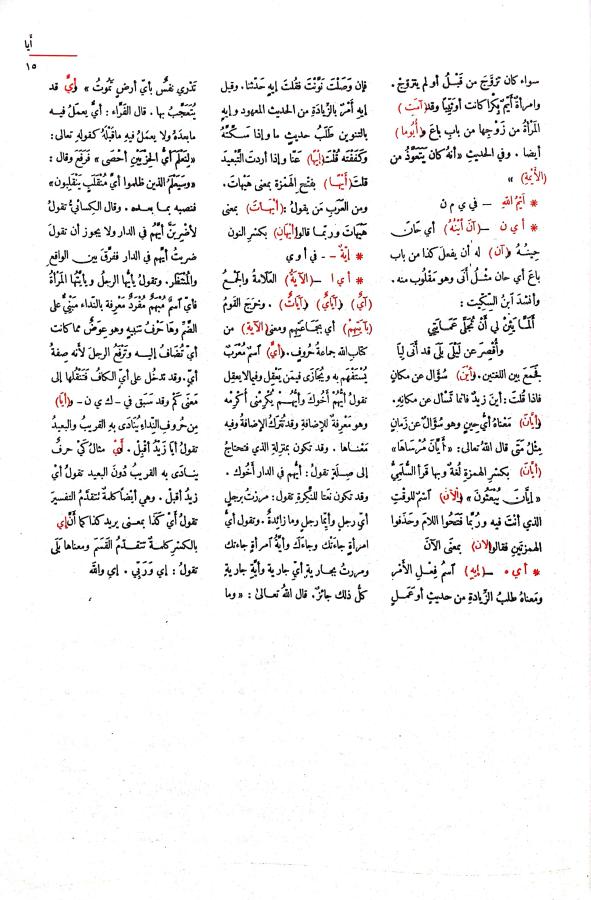 أيا
١٥
سواء كان تزوّج من قَبْلُ أو لم يتزوّج .
وامرأة أيِّمٌ بِكْراً كانت أو ثَيِّباً وقد (آمَت)
المَرْأةُ من زَوْجِها من باب باعَ و(أُيُوما)
أيضا . وفي الحديث «أنه كان يَتَعَوَّذُ من
(الأَيْمَةِ) »
* أَيْمُ اللهِ – في ي م ن
* أ ي ن – (آنَ أَيْنُهُ) أي حَانَ
حِينُهُ و(آن) له أن يفعل كذا من باب
باعَ أي حان مثْلُ أنى وهو مَقْلُوب منه .
وأنشد ابنُ السِّكِيت :
أَلَمَّا يَئِنْ لي أَنْ تُجَلَّى عَمَايَتِي
وأُقْصِرَ عن لَيْلَى بَلَى قد أَنَى لِيَا
فجمع بين اللغتين . (أَيْنَ) سُؤَال عن مكانٍ
فإذا قُلتَ : أينَ زيدٌ فانما تَسْأل عن مكانِهِ .
(أيَّانَ) مَعْناهُ أيُّ حِينٍ وهو سُؤالٌ عن زَمانٍ
مِثْلُ مَتَى قال اللهُ تعالى : «أَيَّانَ مُرْسَاهَا»
(إيَّانَ) بكسْرِ الهمزةِ لُغَةٌ وبها قَرأ السُّلَمِيُّ
«إيَّانَ يُبْعَثُونَ» (الآنَ) اسمٌ للوقتِ
الذي أنت فيه ورُبَّما فَتَحُوا اللامَ وحَذَفوا
الهمزتينِ فقالوا (لَانَ) بمعنى الآنَ
* أ ي ه – (إيهِ) اسمُ فِعْلِ الأَمْرِ
ومَعناهُ طلبُ الزِّيادةِ من حديثٍ أو عَمَلٍ
فإن وَصَلْتَ نَوَّنْتَ فقُلتَ إيهٍ حَدِّثنا . وقيل
إيهِ أَمْرٌ بالزِّيَادَةِ من الحديثِ المعهود وإيهٍ
بالتنوين طَلَبُ حديثٍ ما وإذا سَكَّتَّهُ
وكَفَفْتَه قُلْتَ (إِيهًا) عَنَّا وإذا أردتَ التَّبْعيدَ
قلتَ (أَيْهًا) بفتْح الهَمْزة بمعنى هَيْهَاتَ .
ومن العَرَبِ مَن يقولُ : (أَيْهَاتَ) بمعنى
هَيْهَاتَ وربما قالوا (أَيْهَانِ) بكَسْرِ النون
* إيَةٌ – في أ و ي
* أ ي ا – (الآيَةُ) العَلَامةُ والجَمْعُ
(آيٌ) و(آيَايٌ) و(آيَاتٌ) . وخرَجَ القَومُ
(بآيَتِهِمْ) أي بجَمَاعَتِهم ومعنى (الآيَةِ) من
كتابِ الله جماعةُ حُروف . (أَيٌّ) اسمٌ مُعْرَبٌ
يُسْتَفْهَم به ويُجَازَى فيمَن يَعْقِل وفيما لا يعقِل
تقولُ أَيُّهُمْ أخُوكَ وأيُّهُم يُكْرِمْنِي أُكْرِمْه
وهو مَعْرِفة للإضافةِ وقد تُتْرَكُ الإضافةُ وفيه
مَعْناها . وقد تكون بمنزلةِ الذي فتحتاجُ
إلى صِلَةٍ تقولُ : أيُّهم في الدارِ أخُوك .
وقد تكونُ نعتا للنَّكِرَةِ تقولُ : مررتُ برجلٍ
أيِّ رجلٍ وأيِّما رجلٍ وما زائدةٌ . وتقول أيُّ
امرأةٍ جاءتك وجاءك وأيَّةُ امرأةٍ جاءتك
ومررتُ بجاريةٍ أيِّ جاريةٍ وأيَّةِ جاريةٍ
كلُّ ذلك جائزٌ . قال اللهُ تعالى : «وما
تَدْرِي نفسٌ بأيِّ أرضٍ تَمُوتُ» و(أَيٌّ) قد
يُتَعَجَّبُ بها . قال الفَرَّاء : أيٌّ يعملُ فيه
ما بعدَهُ ولا يعملُ فيه ماقَبْلَهُ كقوله تعالى :
«لِنَعْلَمَ أيُّ الحِزْبَيْنِ أَحْصَى» فَرَفَع وقال :
«وسَيَعْلَمُ الذين ظلموا أيَّ مُنْقَلَبٍ يَنْقَلِبُون»
فنصبه بما بعده . وقال الكسائيُّ تقولُ
لأضْرِبَنَّ أيُّهم في الدار ولا يجوز أن تقولَ
ضربتُ أيُّهم في الدار ففرَّقَ بين الواقع
والمُنْتَظَر . وتقولُ يا أيُّها الرجلُ ويأيَّتُها المَرْأةُ
فأيّ اسمٌ مُبْهَمٌ مُفْرَدٌ مَعْرِفة بالنِّداء مَبْنِيٌّ على
الضَّمِّ وهَا حَرْفُ تنبيهٍ وهو عِوَضٌ مما كانت
أيّ تُضَافُ إليه وتَرْفَعُ الرجلَ لأنه صِفةُ
أيّ . وقد تدخُل على أيّ الكافُ فتَنْقُلُها إلى
مَعْنَى كَمْ وقد سَبَق في – ك ي ن – و(أَيَا)
مِن حُروفِ النِّداءِ يُنادَى به القريب والبعيد
تقولُ أَيَا زَيدُ أَقْبِلْ . و(أَيْ) مثالُ كَيْ حرفٌ
ينادَى به القريبُ دُونَ البعيد تقولُ أيْ
زيدُ أقْبِلْ . وهي أيضًا كلمةٌ تتقدَّمُ التفسيرَ
تقولُ أيْ كَذَا بمعنى يريد كذا كما أنّ (إي)
بالكسْرِ كلمةٌ تتقدَّمُ القَسَمَ ومعناها بَلَى
تقولُ : إي وَرَبِّي . إي واللهِ